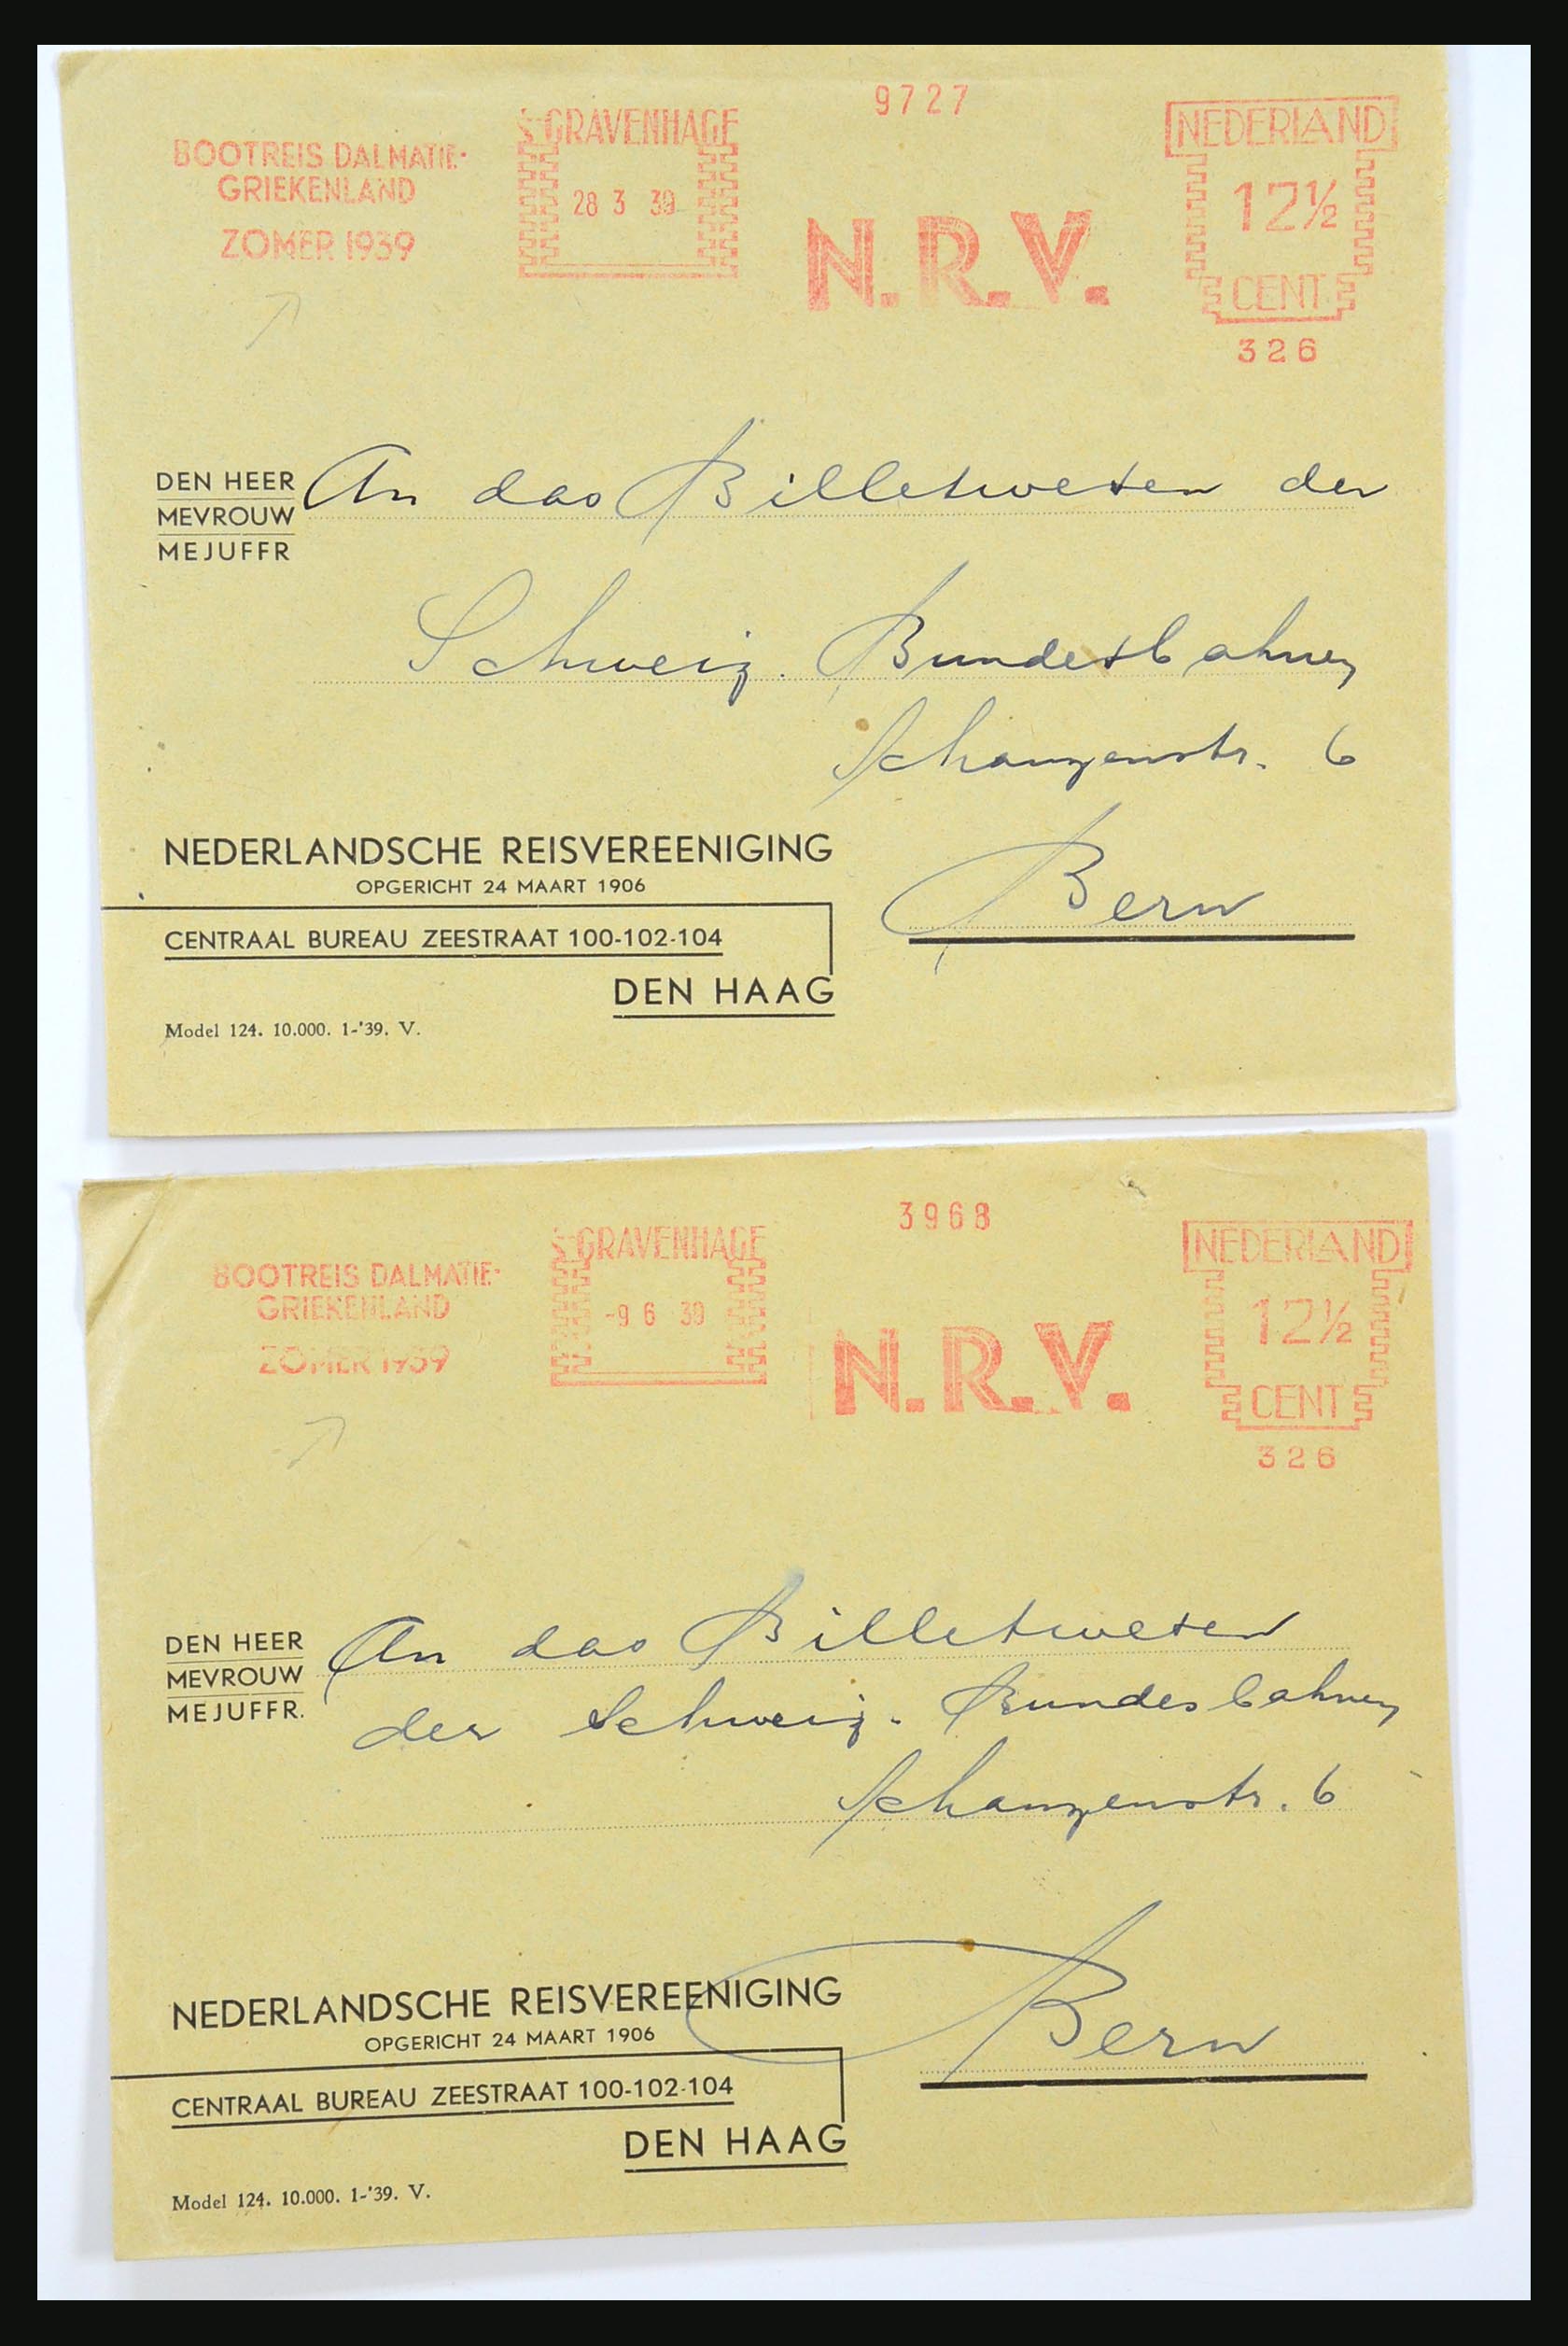 9727
BOOTREIS DALMATIE-
GRIEKENLAND
ZOMER 1939
'S-GRAVENHAGE
28 3 39
N.R.V.
NEDERLAND
12½
CENT
326
DEN HEER
MEVROUW
MEJUFFR
An das Billetwesen der
Schweiz. Bundesbahnen
Schanzenstr. 6
Bern
NEDERLANDSCHE REISVEREENIGING
OPGERICHT 24 MAART 1906
CENTRAAL BUREAU ZEESTRAAT 100-102-104
DEN HAAG
Model 124. 10.000. 1-'39. V.
3968
BOOTREIS DALMATIE-
GRIEKENLAND
ZOMER 1939
'S-GRAVENHAGE
-9 6 39
N.R.V.
NEDERLAND
12½
CENT
326
DEN HEER
MEVROUW
MEJUFFR.
An das Billetwesen
der Schweiz. Bundesbahnen
Schanzenstr. 6
Bern
NEDERLANDSCHE REISVEREENIGING
OPGERICHT 24 MAART 1906
CENTRAAL BUREAU ZEESTRAAT 100-102-104
DEN HAAG
Model 124. 10.000. 1-'39. V.